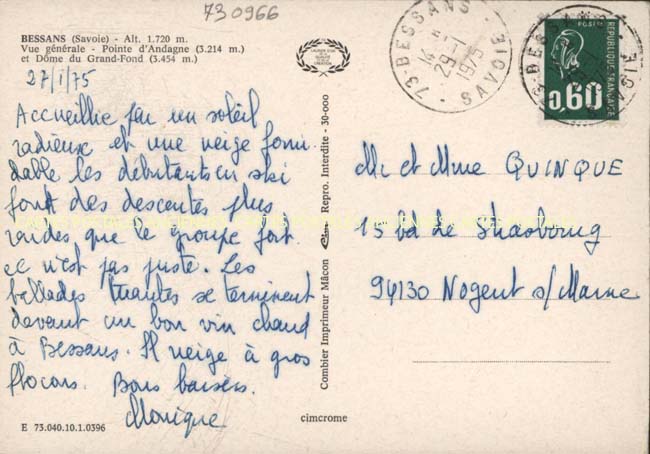 730966
BESSANS (Savoie) - Alt. 1.720 m.
Vue générale - Pointe d'Andagne (3.214 m.)
et Dôme du Grand-Fond (3.454 m.)
27/1/75
Accueillie par un soleil
radieux et une neige formi
dable les débutants en ski
font des descentes plus
raides que le groupe fort.
ce n'est pas juste. Les
ballades tuantes se terminent
devant un bon vin chaud
à Bessans. Il neige à gros
flocons. Bons baisers.
Monique
E 73.040.10.1.0396
Combier Imprimeur Mâcon Repro. Interdite - 30-000
cimcrome
73-BESSANS
29-1
1975
SAVOIE
POSTES
REPUBLIQUE FRANÇAISE
0,60
Mr et Mme QUINQUE
15 bd de Strasbourg
94130 Nogent s/Marne